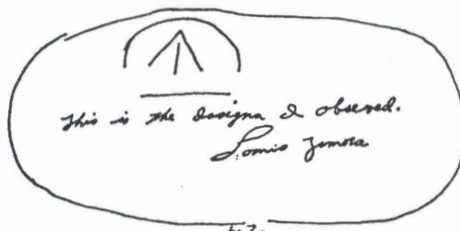 This is the designa I observed.
Lonnie Zamora
L.Z.